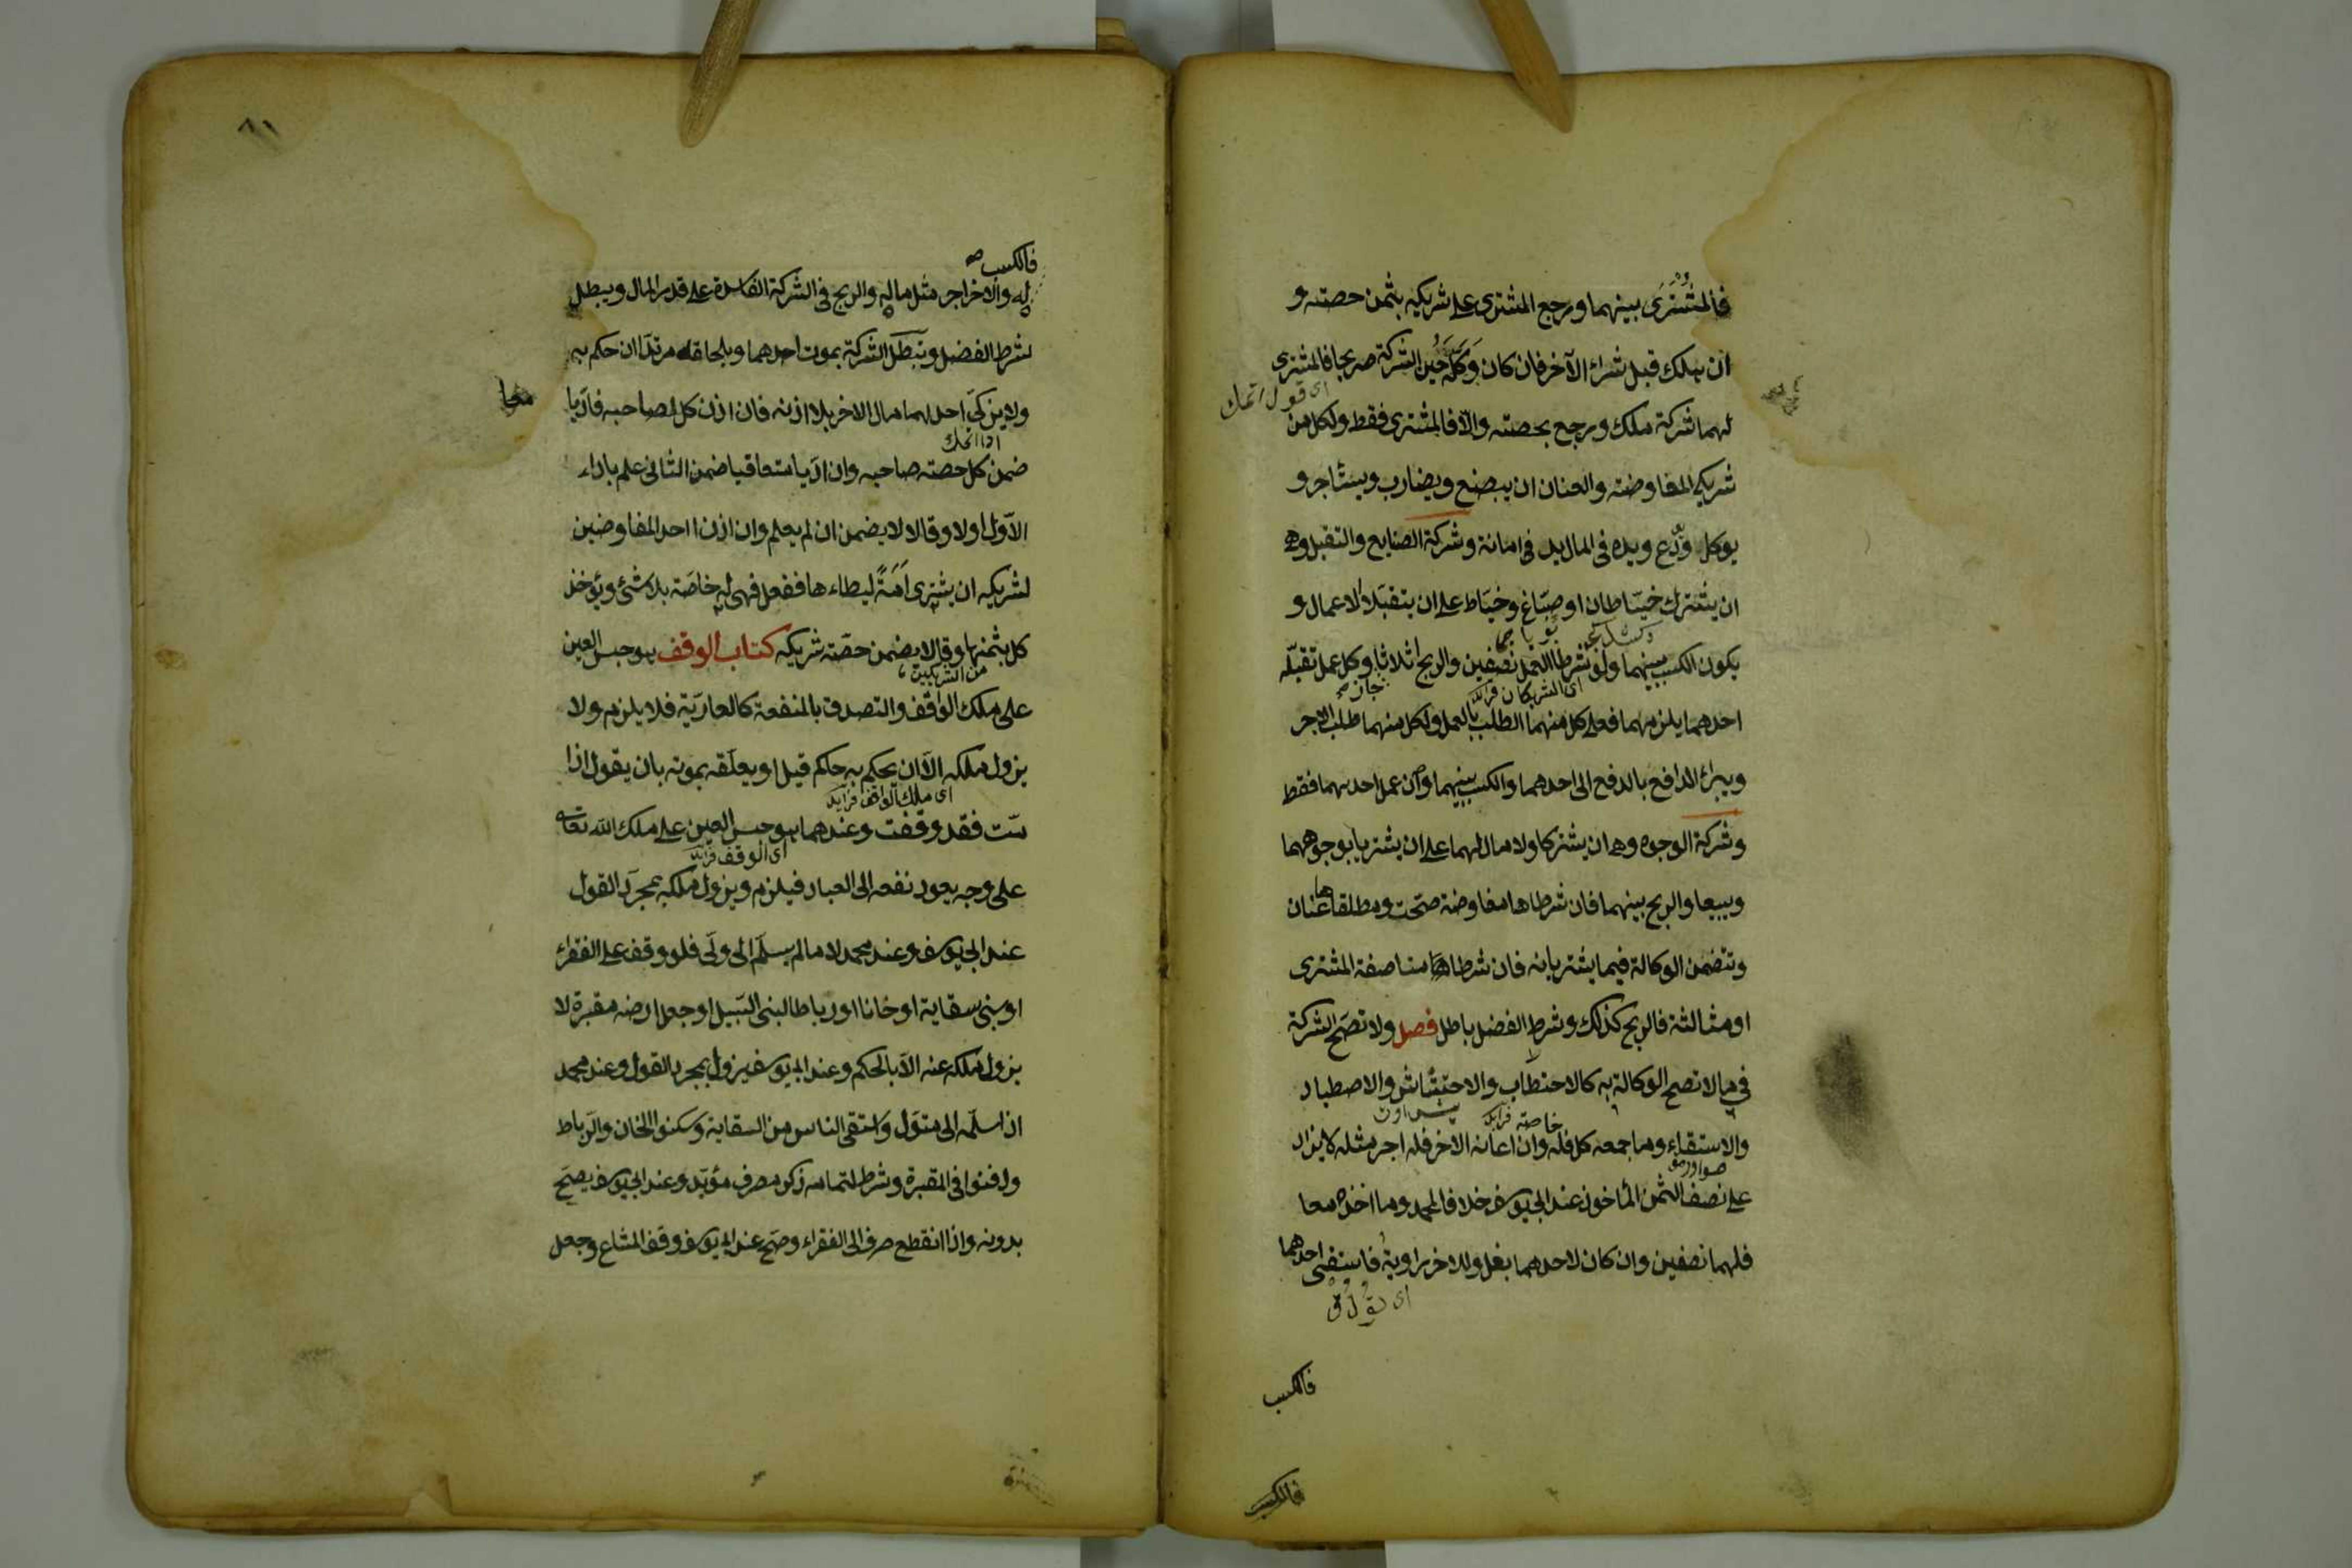 فالمُشْتَرَى بينهما ورجع المشترى على شريكه بثمن حصته و
ان هلك قبل شراء الآخر فان كان وَكَّلَهُ حين الشركة صريحا فالمشترى
لهما شركة ملك ورجع بحصته والّا فالمشترى فقط ولكل من
شريكي المفاوضة والعنان ان يبضع ويضارب ويستأجر و
يوكل ودّع ويده فى المال يد فى امانة وشركة الصنايع والتقبل وهى
ان يشترك خيّاطان او صبّاغ وخيّاط على ان يتقبّلا الاعمال و
يكون الكسب بينهما ولو شرطا العمل نصفين والربح اثلاثا وكل عمل تقبلّه
اى الشريكان فرائد جاز صح
احدهما يلزمهما فعلى كل منهما الطلب بالعمل ولكل منهما طلب الاجر
ويبرائ الدافع بالدفع الى احدهما والكسب بينهما وان عمل احدهما فقط
وشركة الوجوه وهى ان يشتركا ولا مال لهما على ان يشتريا بوجوههما
ويبيعا والربح بينهما فان شرطاها مفاوضة صحّت ومطلقاها عنان
وتتضمن الوكالة فيما يشتريانه فان شرطا مناصفة المشترى
او مثالثة فالربح كذلك وشرط الفضل باطل فصل ولا تصحّ الشركة
فى ما لا تصح الوكالة به كالاحتطاب والاحتشاش والاصطياد
خاصة فرائد
والاستقاء وما جمعه كل فله وان اعانه الاخر فله اجر مثله لا يزاد
على نصف الثمن المأخوذ عند ابى يوسف خلافا لمحمد وما اخذه معا
فلهما نصفين وان كان لاحدهما بغل وللاخر راوية فاستقى احدهما
فالكسب
فالكسب
٨١
فالكسب صح
له وللاخر اجر مثل ماله والربح فى الشركة الفاسدة على قدر المال ويبطل
شرط الفضل وتبطل الشركة بموت احدهما وبلحاقه مرتدّا ان حكم به
ولا يزكّى احدهما مال الاخر بلا اذنه فان اذن كل لصاحبه فادّيا
ضمن كل حصته صاحبه وان ادّيا متعاقبا ضمن الثانى علم باداء
الاوّل او لا وقالا لا يضمن ان لم يعلم وان اذن احد المفاوضين
لشريكه ان يشترى اَمَةً ليطاء ها ففعل فهى له خاصّة بلا شئ ويؤخذ
كل بثمنها وقالا يضمن حصّة شريكه كتاب الوقف هو حبس العين
من الشريكين
على ملك الواقف والتصدق بالمنفعة كالعاريّة فلا يلزم ولا
يزول ملكه الّا ان يحكم به حاكم قيل او يعلّقه بموته بان يقول اذا
اى ملك الواقف فرائد
متّ فقد وقفت وعندهما هو حبس العين على ملك الله تعالى
اى الوقف فرائد
على وجه يعود نفعه الى العباد فيلزم ويزول ملكه بمجرّد القول
عند ابى يوسف وعند محمد لا ما لم يسلّم الى ولّى فلو وقف على الفقراء
او بنى سقاية او خانا او رباطا لبنى السّبيل او جعل ارضه مقبرة لا
يزول ملكه عنه الّا بالحكم وعند ابى يوسف يزول بمجرد القول وعند محمد
اذا سلّمه الى متوّل واستقى الناس من السقاية وسكنوا الخان والرّباط
ودفنوا فى المقبرة وشرط لتمامه ذكر مصرف مؤبّد وعند ابى يوسف يصحّ
بدونه واذا انقطع صرف الى الفقراء وصحّ عند ابى يوسف وقف المشاع وجعل